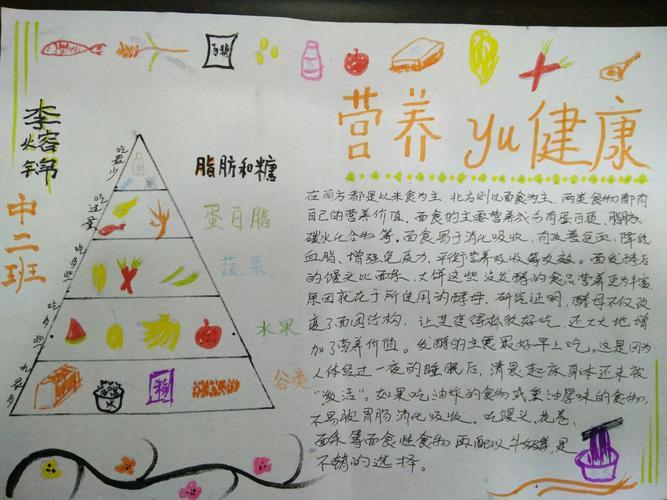 白糖
营养yu健康
李熔锦
中二班
吃最少
脂肪和糖
吃适量
蛋白脂
吃多些
蔬菜
吃多些
水果
吃最多
谷类
米
面
在南方都是以米食为主,北方则以面食为主,两类食物都有
自己的营养价值。面食的主要营养成分有蛋白质、脂肪、
碳水化合物等。面食易于消化吸收,有改善贫血、降低
血脂、增强免疫力、平衡营养吸收等效。面发酵后
的馒头比面条、大饼这些没发酵的食品营养更为丰富
原因就在于所使用的酵母。研究证明,酵母不仅改
变了面团结构,让其变得松软好吃,还大大地增
加了营养价值。发酵的主食最好早上吃。这是因为
人体经过一夜的睡眠后,清晨起床身体还未被
“激活”。如果吃油炸的食物或重油厚味的食物,
不易被胃肠消化吸收。吃馒头、花卷、
面条等面食性食物再配以牛奶等,是
不错的选择。